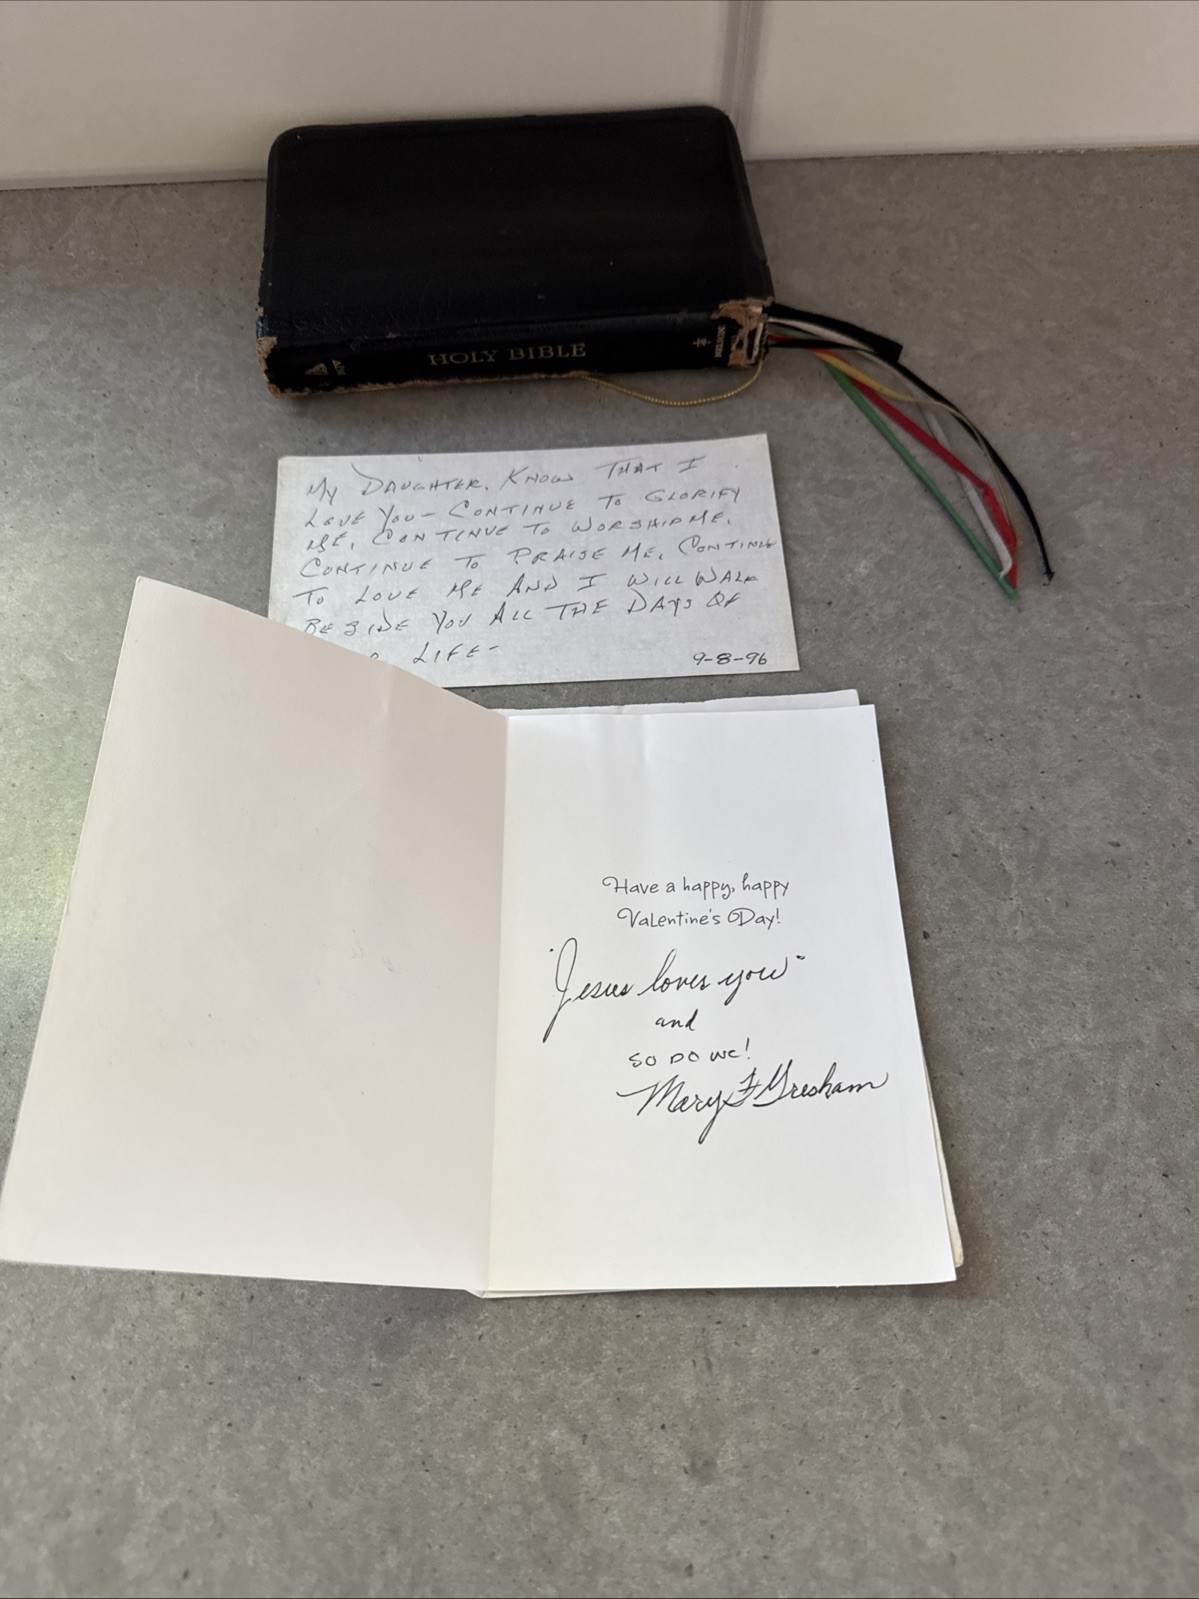 HOLY BIBLE
NELSON
MY DAUGHTER, KNOW THAT I
LOVE YOU - CONTINUE TO GLORIFY
ME, CONTINUE TO WORSHIP ME,
CONTINUE TO PRAISE ME, CONTINUE
TO LOVE ME AND I WILL WALK
BESIDE YOU ALL THE DAYS OF
LIFE -
9-8-96
Have a happy, happy
Valentine's Day!
"Jesus loves you"
and
SO DO WE!
Mary F Gresham